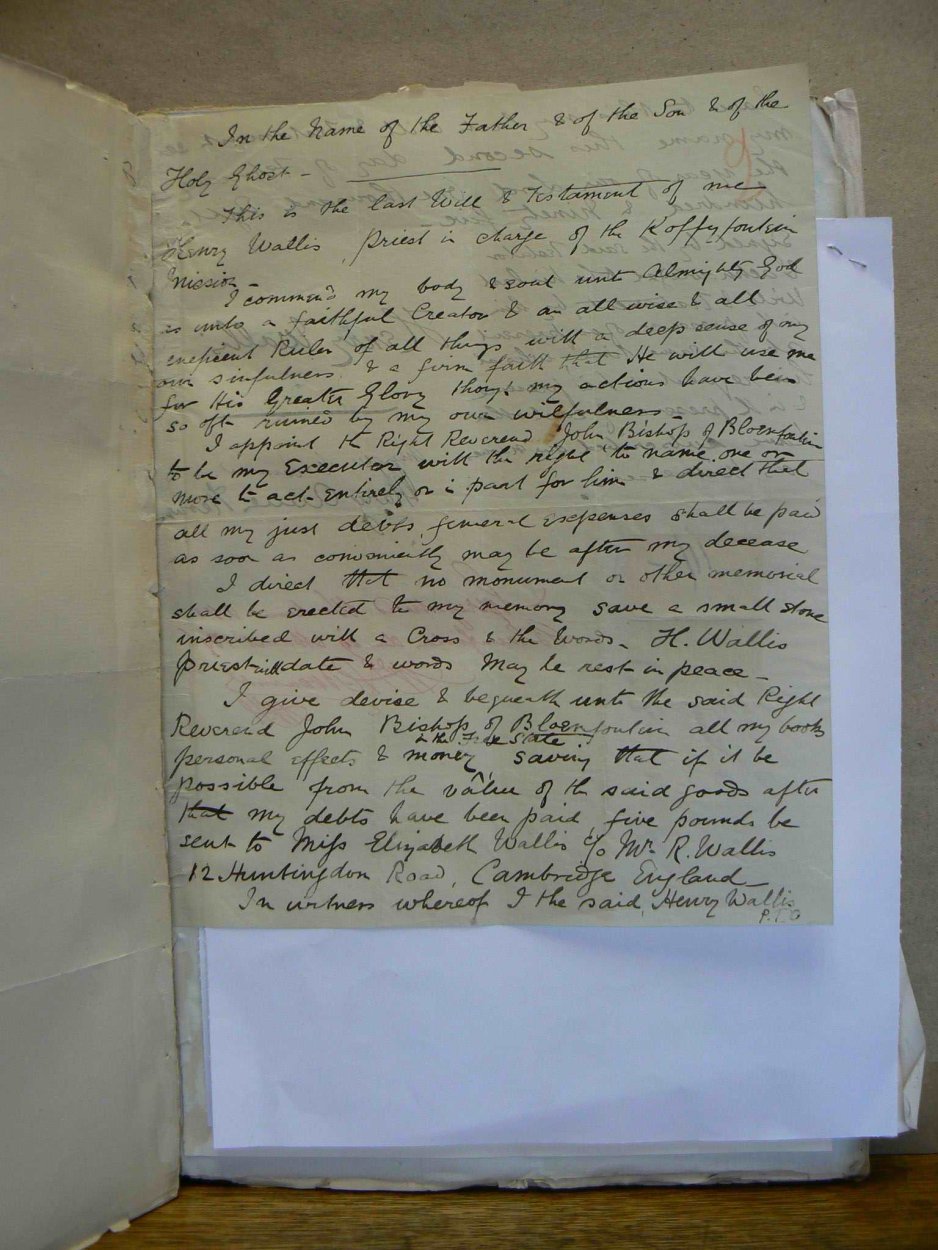 In the Name of the Father & of the Son & of the
Holy Ghost -
This is the last Will & Testament of me
Henry Wallis, Priest in charge of the Koffyfontein
Mission -
I commend my body & soul unto Almighty God
as unto a faithful Creator & an all wise & all
eneficient Ruler of all things with a deep sense of my
own sinfulness, & a firm faith that He will use me
for His Greater Glory tho' my actions have been
so oft ruined by my own wilfulness -
I appoint the Right Reverend John Bishop of Bloemfontein
to be my Executor with the right to name one or
more to act entirely or in part for him & direct that
all my just debts funeral expenses shall be paid
as soon as conveniently may be after my decease
I direct that no monument or other memorial
shall be erected to my memory save a small stone
inscribed with a Cross & the Words - H. Wallis
Priest with date & words May he rest in peace -
I give devise & bequeath unto the said Right
Reverend John Bishop of Bloemfontein all my books
in the Free State
personal effects & money saving that if it be
possible from the value of the said goods after
that my debts have been paid, five pounds be
sent to Miss Elizabeth Wallis c/o Mr R. Wallis
12 Huntingdon Road, Cambridge England -
In witness whereof I the said, Henry Wallis
P.T.O